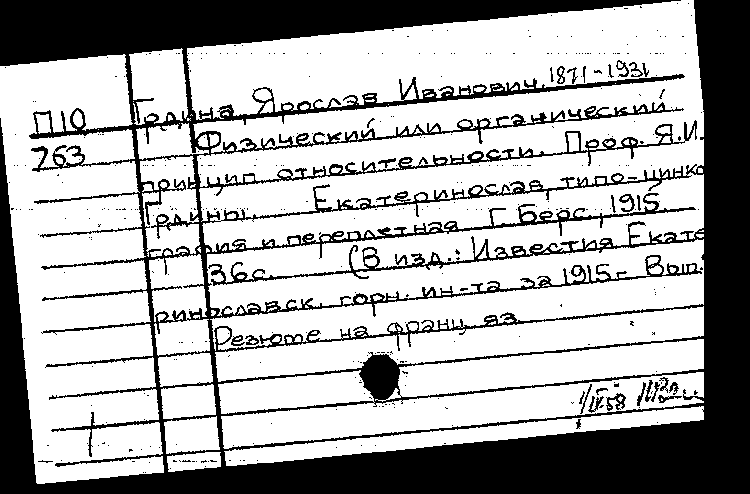 П10 Грдина, Ярослав Иванович. 1871-1931
763 Физический или органический
принцип относительности. Проф. Я.И.
Грдины. Екатеринослав, типо-цинко
графия и переплетная Г. Берс, 1915.
36с. (В изд.: Известия Екате
ринославск. горн. ин-та за 1915г. Вып.
Резюме на франц. яз.
1/IV58